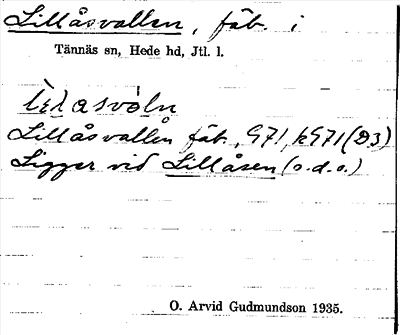 Lillåsvallen, fäb. i
Tännäs sn, Hede hd, Jtl. l.
Lillåsvallen fäb., G71, kG71 (D3)
Ligger vid Lillåsen (s.d.o.)
O. Arvid Gudmundson 1935.